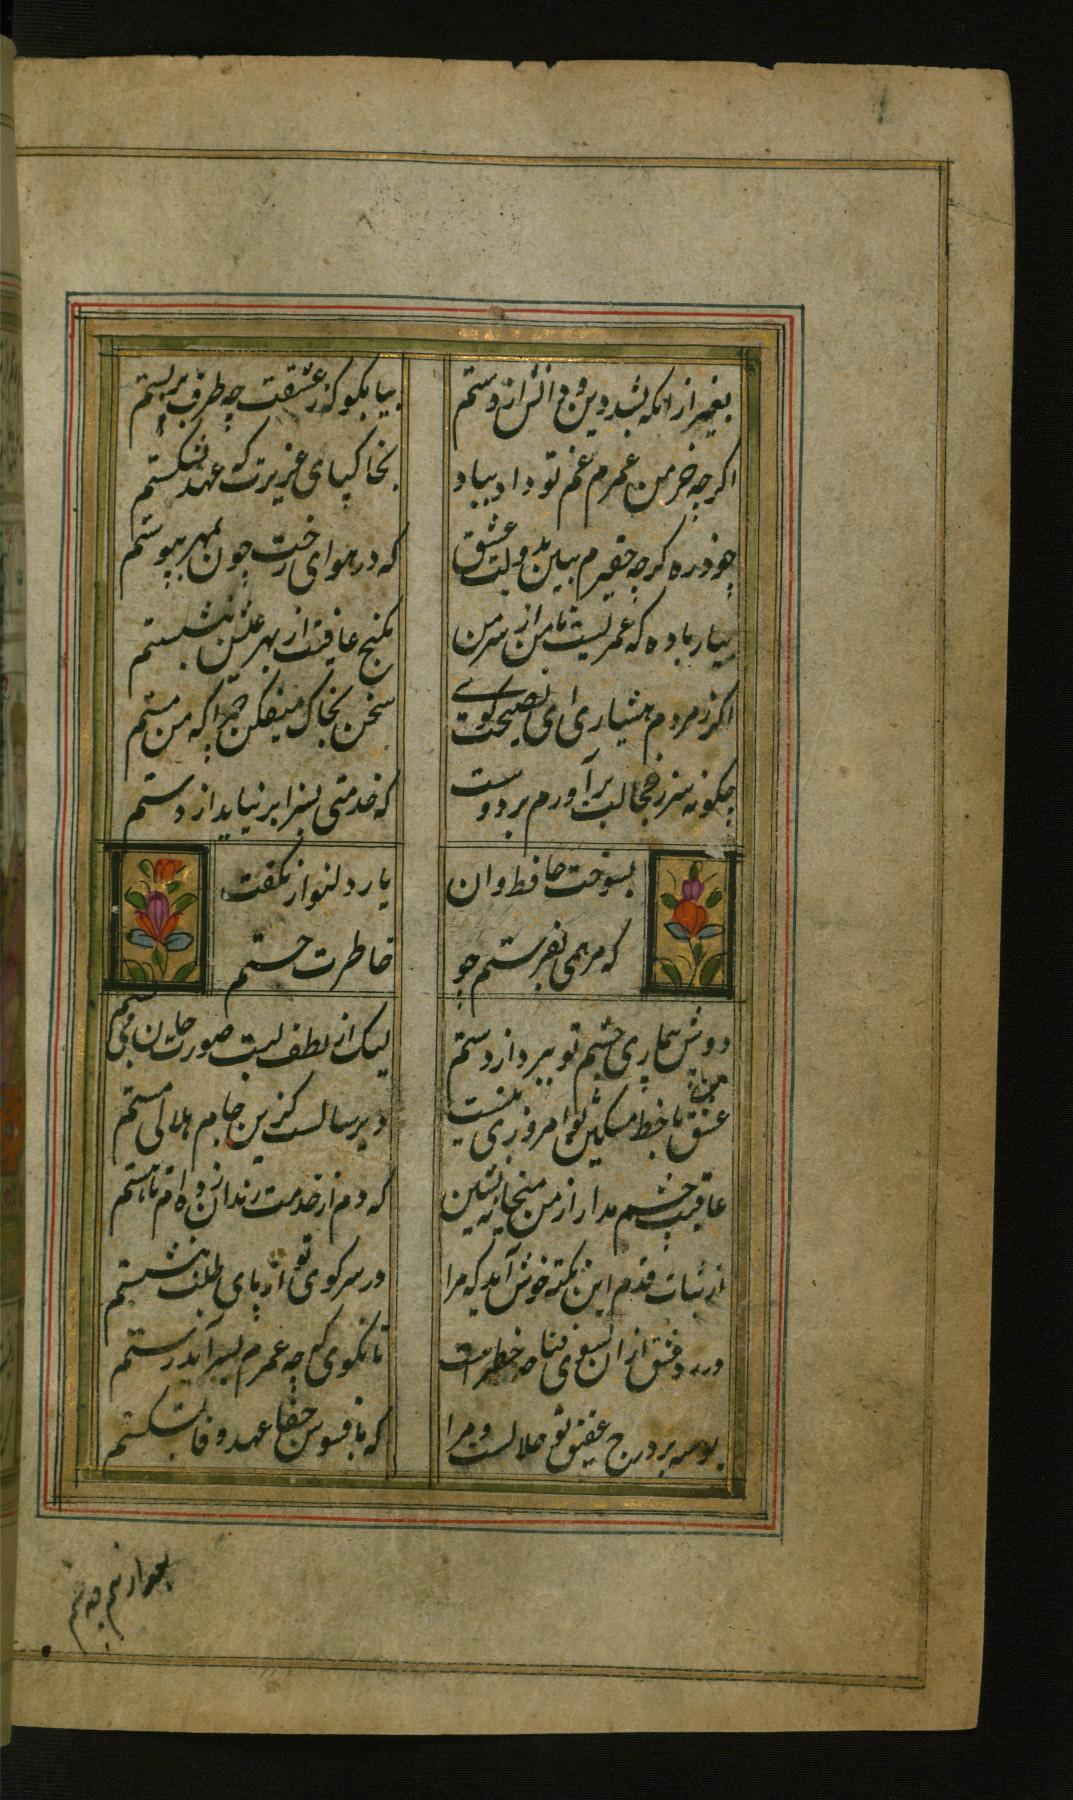 بغیر از آنکه بشد دین و دانش از دستم
بیا بگو که ز عشقت چه طرف بربستم
اگرچه خرمن عمرم غم تو داد بباد
بخاکپای عزیزت که عهد نشکستم
چو ذره گرچه حقیرم ببین بدولت عشق
که در هوای رخت چون بمهر پیوستم
بیار باده که عمریست تا من از سر من
بکنج عافیت از بهر عیش ننشستم
اگر ز مردم هشیاری ای نصیحت گوی
سخن بخاک میفکن چرا که من مستم
چگونه سر ز خجالت برآورم بر دوست
که خدمتی بسزا برنیاید از دستم
بسوخت حافظ و آن
یار دلنواز نگفت
که مرهمی بفرستم چو
خاطرت خستم
دوش بیماری چشم تو ببرد از دستم
لیک از لطف لبت صورت جان می بستم
عشق من با خط مشکین تو امروزی نیست
دیرسالست کزین جام هلالی مستم
عاقبت چشم مدار از من میخانه نشین
که دم از خدمت رندان زده ام تا هستم
از ثبات قدم این نکته خوش آمد که مرا
در سر کوی تو از پای طلب ننشستم
در ره عشق از آن سوی فنا صد خطرست
تا نگوی که چو عمرم بسر آید رستم
بوسه بر درج عقیق تو حلالست مرا
که بافسوس جفا عهد وفا نشکستم
بعد از نیم چه غم